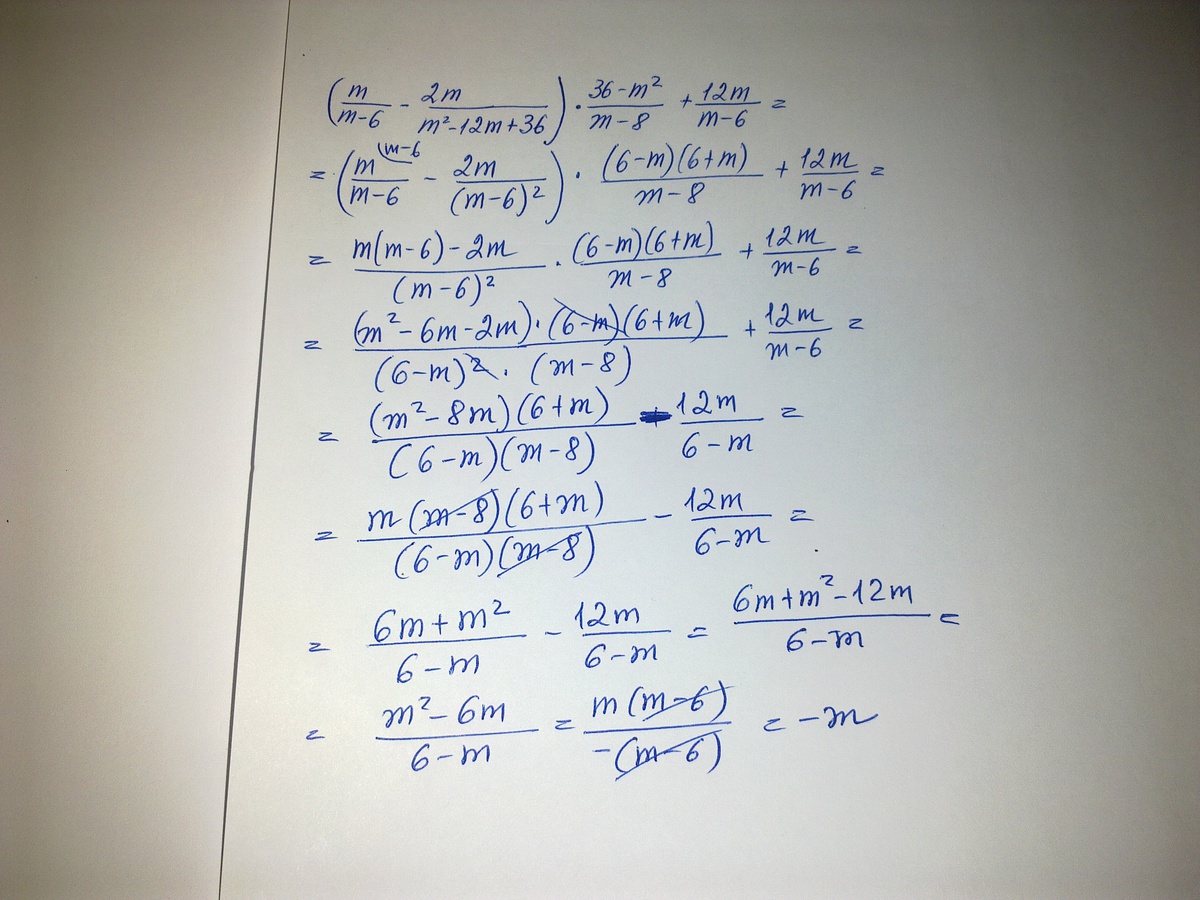 (m/(m-6) - 2m/(m²-12m+36)) · (36-m²)/(m-8) + 12m/(m-6) =
= (m^(m-6/(m-6) - 2m/(m-6)²) · (6-m)(6+m)/(m-8) + 12m/(m-6) =
= (m(m-6)-2m)/(m-6)² · (6-m)(6+m)/(m-8) + 12m/(m-6) =
= (m²-6m-2m)·(6-m)(6+m)/((6-m)²·(m-8)) + 12m/(m-6) =
= (m²-8m)(6+m)/((6-m)(m-8)) - 12m/(6-m) =
= m(m-8)(6+m)/((6-m)(m-8)) - 12m/(6-m) =
= (6m+m²)/(6-m) - 12m/(6-m) = (6m+m²-12m)/(6-m) =
= (m²-6m)/(6-m) = m(m-6)/(-(m-6)) = -m